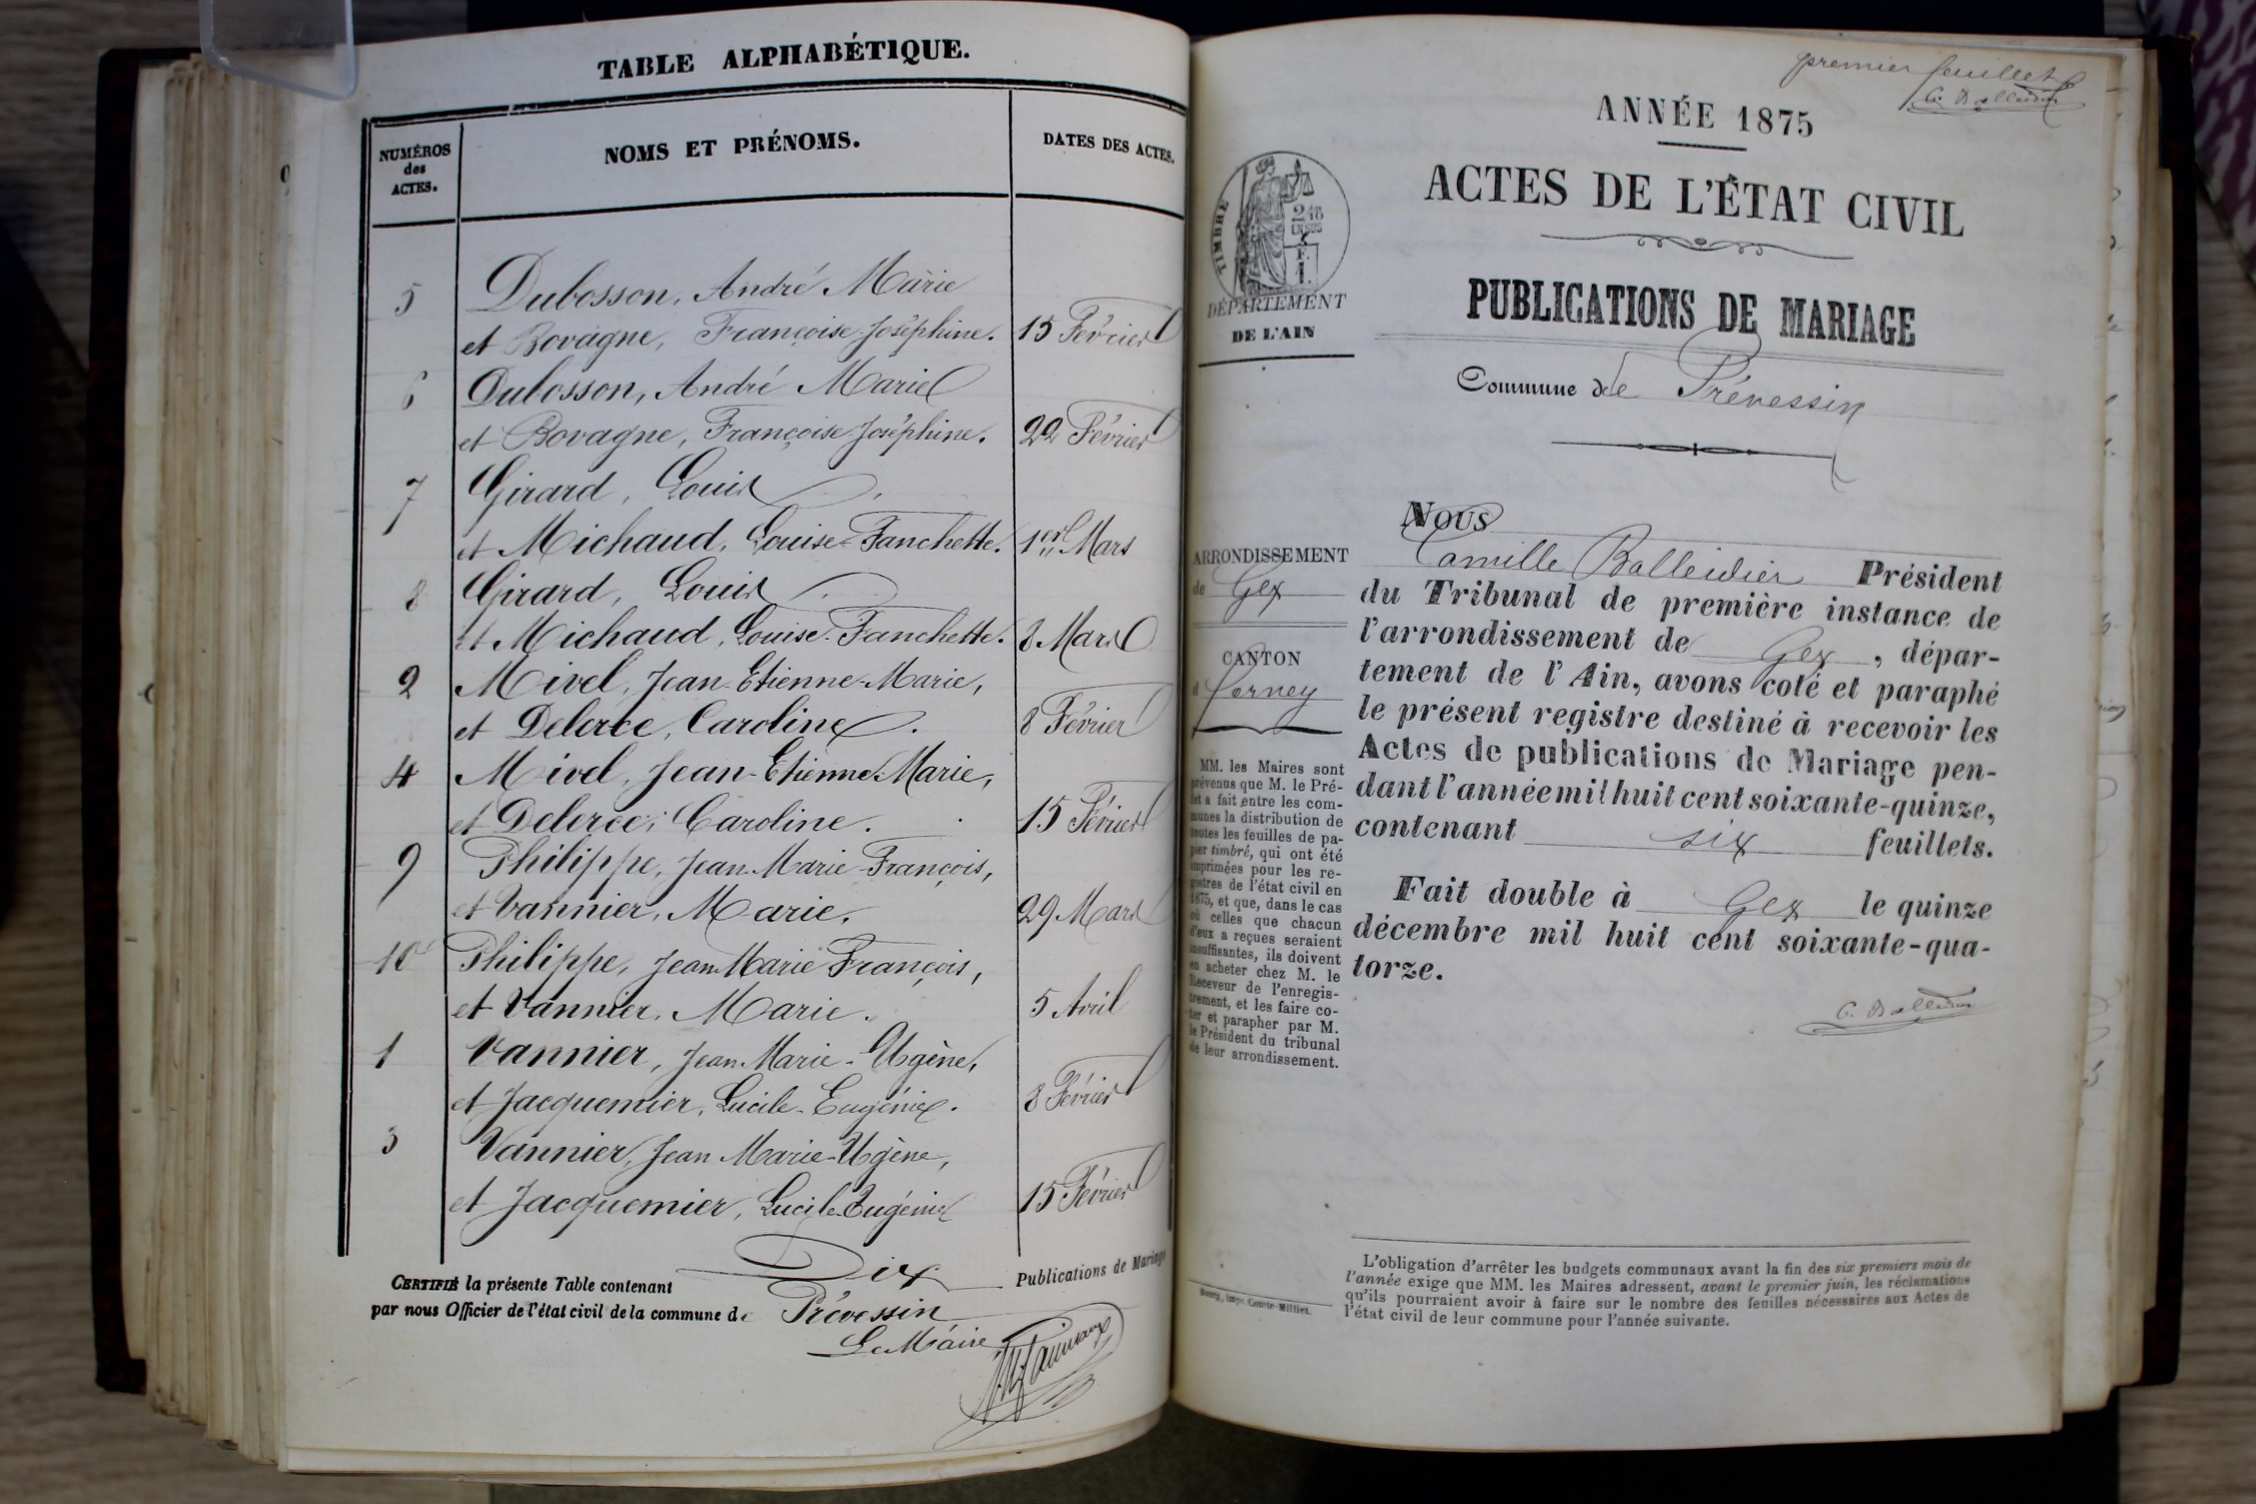 TABLE ALPHABÉTIQUE.
NUMÉROS
des
ACTES.
NOMS ET PRÉNOMS.
DATES DES ACTES.
5 Dubosson, André Marie
et Bovagne, Françoise Joséphine. 15 Février
6 Dubosson, André Marie
et Bovagne, Françoise Joséphine. 22 Février
7 Girard, Louis
et Michaud, Louise-Fanchette. 1er Mars
8 Girard, Louis
et Michaud, Louise-Fanchette. 8 Mars
2 Mivel, Jean-Etienne-Marie,
et Delerce, Caroline. 8 Février
4 Mivel, Jean-Etienne-Marie,
et Delerce, Caroline. 15 Février
9 Philippe, Jean-Marie-François,
et Vannier, Marie. 29 Mars
10 Philippe, Jean-Marie François,
et Vannier, Marie. 5 Avril
1 Vannier, Jean-Marie-Ugène,
et Jacquemier, Lucile-Eugénie. 8 Février
3 Vannier, Jean Marie-Ugène,
et Jacquemier, Lucile Eugénie 15 Février
CERTIFIÉ la présente Table contenant Dix Publications de Mariage
par nous Officier de l'état civil de la commune de Prévessin
Le Maire
premier feuillet
ANNÉE 1875
ACTES DE L'ÉTAT CIVIL
PUBLICATIONS DE MARIAGE
Commune de Prévessin
TIMBRE
DÉPARTEMENT
DE L'AIN
ARRONDISSEMENT
de Gex
CANTON
d Ferney
MM. les Maires sont
prévenus que M. le Pré-
fet a fait entre les com-
munes la distribution de
toutes les feuilles de pa-
pier timbré, qui ont été
imprimées pour les re-
gistres de l'état civil en
1875, et que, dans le cas
où celles que chacun
d'eux a reçues seraient
insuffisantes, ils doivent
en acheter chez M. le
Receveur de l'enregis-
trement, et les faire co-
ter et parapher par M.
le Président du tribunal
de leur arrondissement.
NOUS
Camille Balleidier Président
du Tribunal de première instance de
l'arrondissement de Gex, dépar-
tement de l'Ain, avons coté et paraphé
le présent registre destiné à recevoir les
Actes de publications de Mariage pen-
dant l'année mil huit cent soixante-quinze,
contenant six feuillets.
Fait double à Gex le quinze
décembre mil huit cent soixante-qua-
torze.
L'obligation d'arrêter les budgets communaux avant la fin des six premiers mois de
l'année exige que MM. les Maires adressent, avant le premier juin, les réclamations
qu'ils pourraient avoir à faire sur le nombre des feuilles nécessaires aux Actes de
l'état civil de leur commune pour l'année suivante.